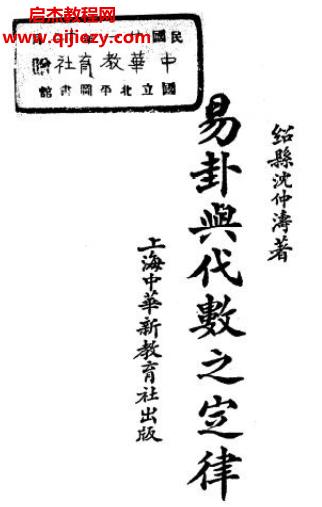 启杰教程网
www.qijiezy.com
民國
中華教育社
國立北平圖書館
紹縣沈仲濤著
易卦與代數之定律
上海中華新教育社出版